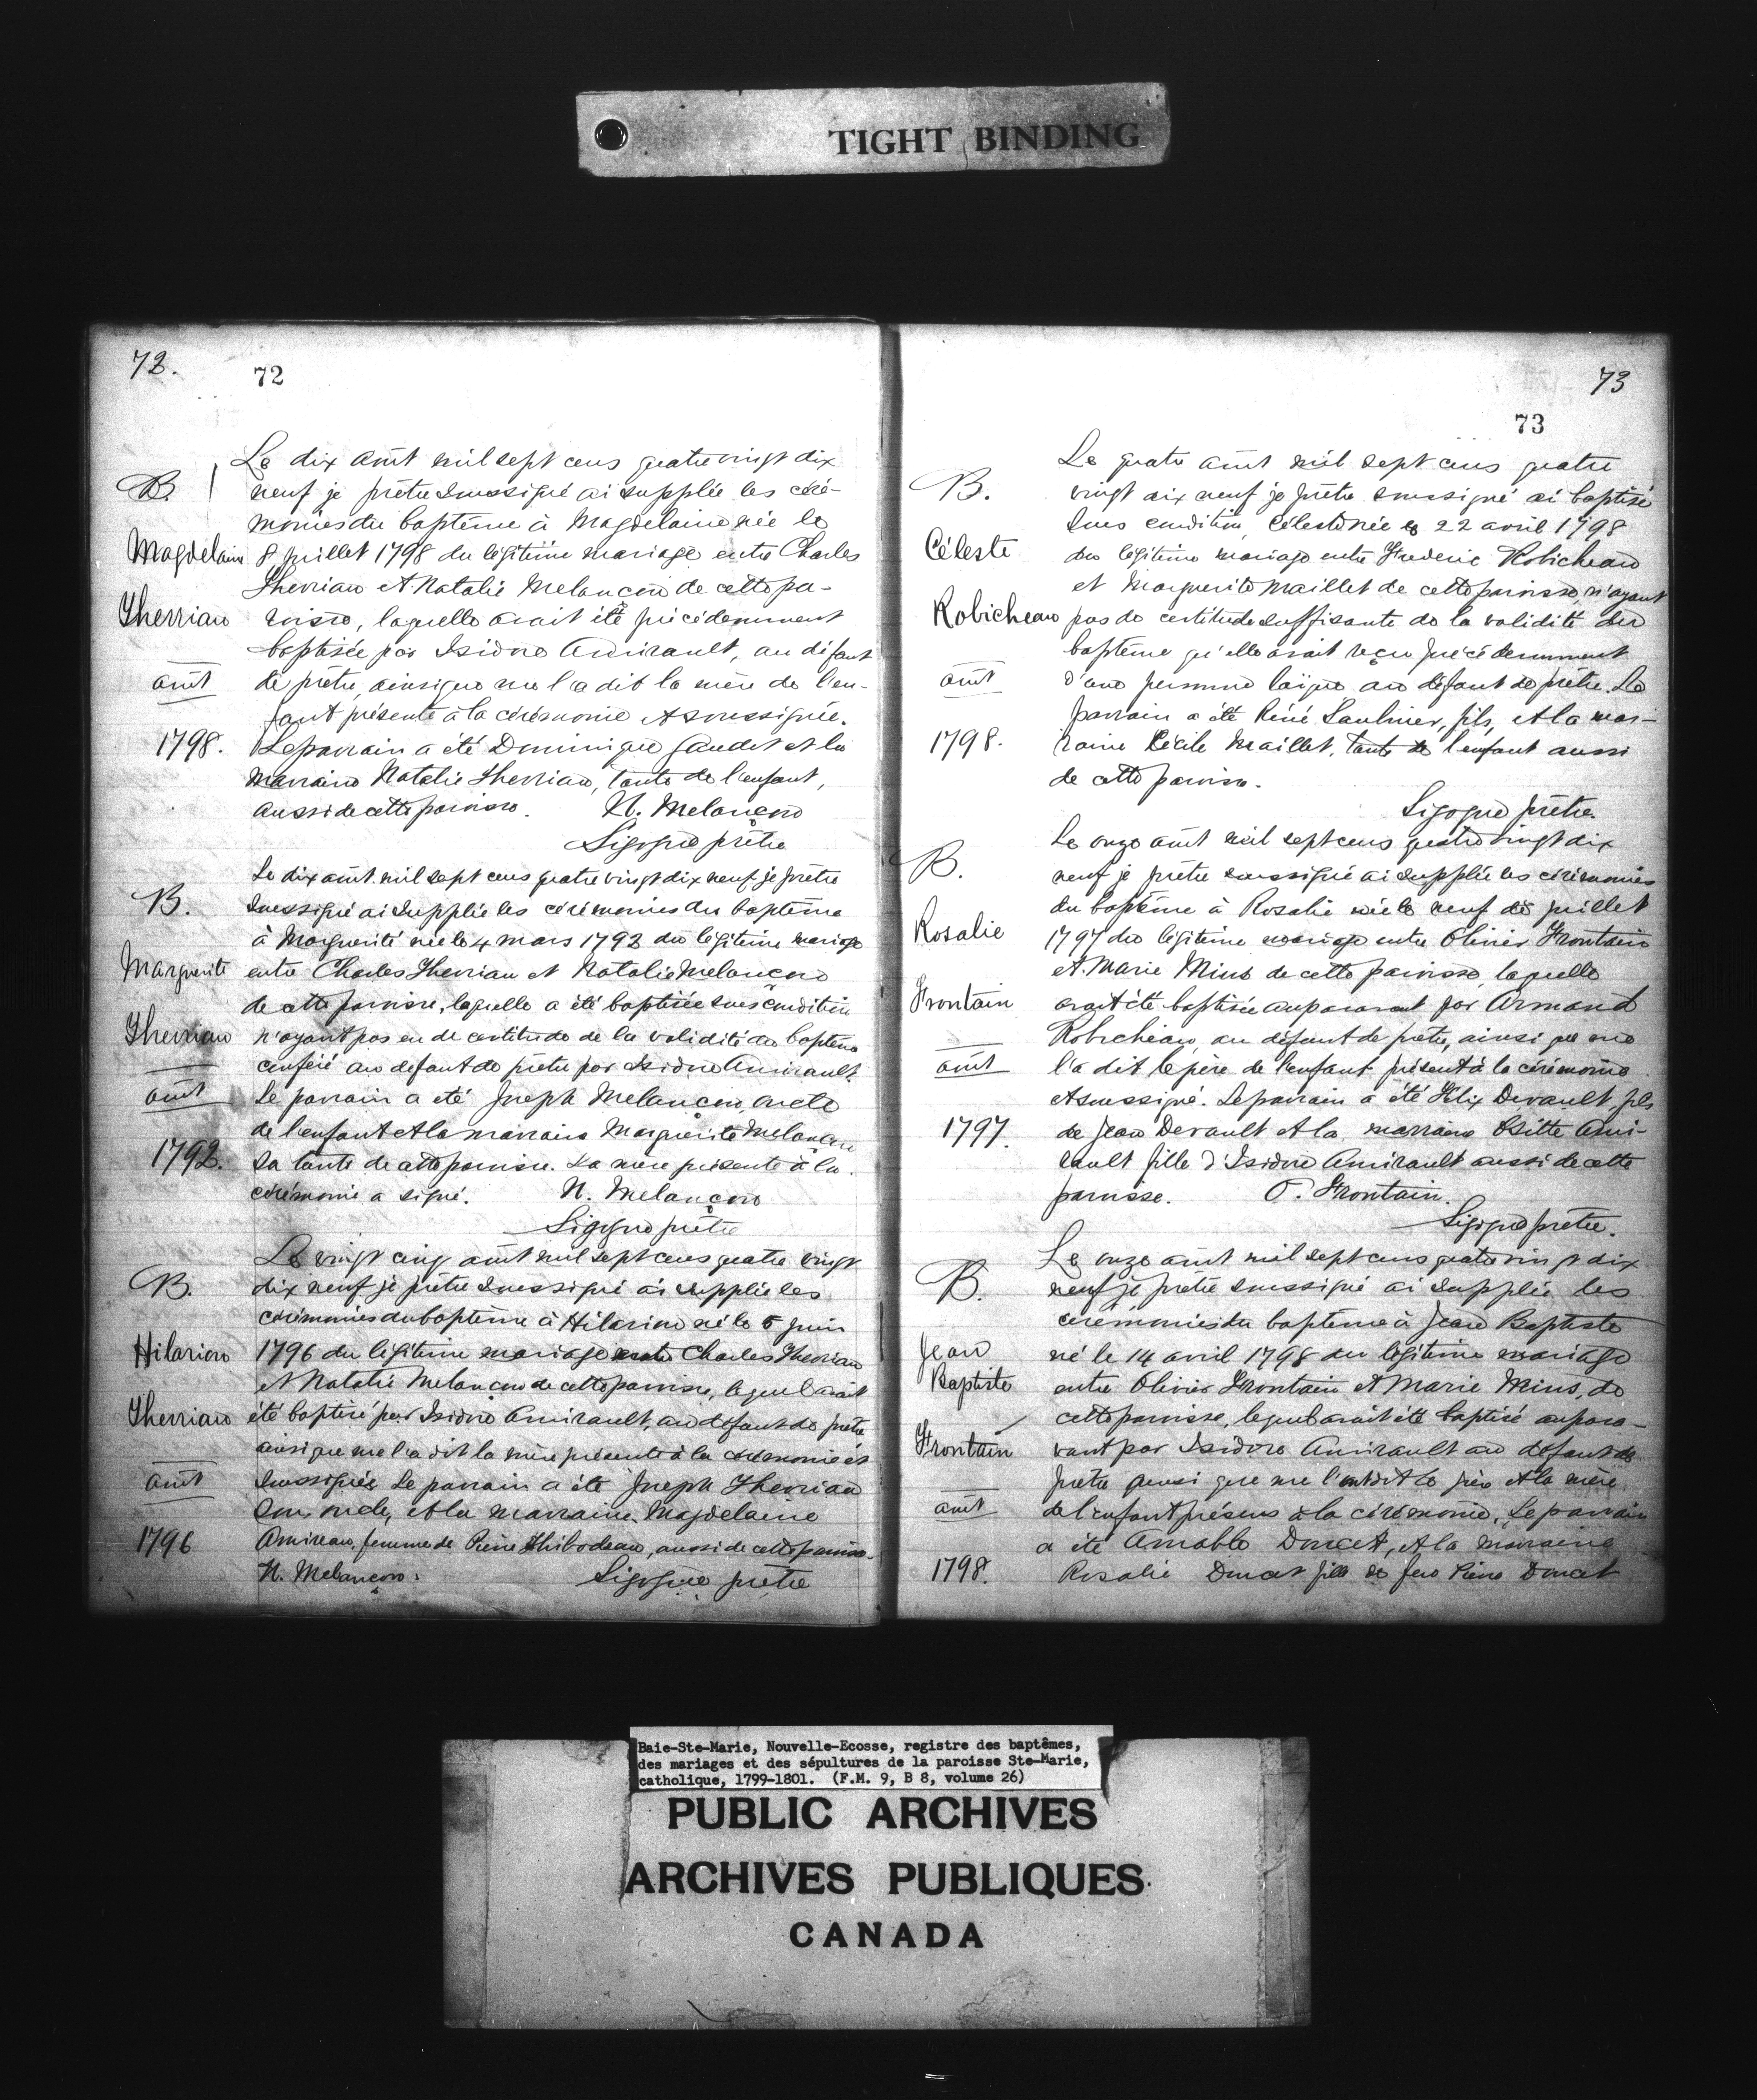 TIGHT BINDING
72.
72
Le dix août mil sept cens quatre vingt dix
B.
neuf je prêtre soussigné ai supplée les céré-
monies du baptême à Magdelaine née le
Magdelain
8 juillet 1798 du légitime mariage entre Charles
Therriau et Natalie Melançon de cette pa-
Therriau
roisse, laquelle avait été précédemment
baptisée par Isidore Amirault, au défaut
août
de prêtre, ainsi que me l'a dit la mère de l'en-
fant présente à la cérémonie et soussignée.
1798.
Le parrain a été Dominique Gaudet et la
marraine Natalie Therriau, tante de l'enfant,
aussi de cette paroisse. N. Melançon
Sigogne prêtre
Le dix août mil sept cens quatre vingt dix neuf je prêtre
B.
soussigné ai supplée les cérémonies du baptême
à Marguerite née le 4 mars 1792 du légitime mariage
Marguerite
entre Charles Therriau et Natalie Melançon
de cette paroisse, laquelle a été baptisée sous condition
Therriau
n'ayant pas eu de certitude de la validité du baptême
conféré au défaut de prêtre par Isidore Amirault.
août
Le parrain a été Joseph Melançon, oncle
de l'enfant et la marraine Marguerite Melançon
1792.
sa tante de cette paroisse. La mère présente à la
cérémonie a signé. N. Melançon
Sigogne prêtre
Le vingt cinq août mil sept cens quatre vingt
B.
dix neuf je prêtre soussigné ai supplée les
cérémonies du baptême à Hilarion né le 5 juin
Hilarion
1796 du légitime mariage entre Charles Therriau
et Natalie Melançon de cette paroisse, lequel avait
Therriau
été baptisé par Isidore Amirault, au défaut de prêtre
ainsi que me l'a dit la mère présente à la cérémonie et
août
soussignée. Le parrain a été Joseph Therriau
son oncle, et la marraine Magdelaine
1796
Amireau, femme de Pierre Thibodeau, aussi de cette paroisse.
N. Melançon. Sigogne prêtre
73
73
Le quatre août mil sept cens quatre
B.
vingt dix neuf je prêtre soussigné ai baptisé
sous condition, Céleste née le 22 avril 1798
Céleste
du légitime mariage entre Frederic Robicheau
et Marguerite Maillet de cette paroisse, n'ayant
Robicheau
pas de certitude suffisante de la validité du
baptême qu'elle avait reçu précédemment
août
d'une personne laïque au défaut de prêtre. Le
parrain a été Réné Saulnier, fils, et la mar-
1798.
raine Cécile Maillet, tante de l'enfant aussi
de cette paroisse.
Sigogne prêtre.
Le onze août mil sept cens quatre vingt dix
B.
neuf je prêtre soussigné ai supplée les cérémonies
du baptême à Rosalie née le neuf de juillet
Rosalie
1797 du légitime mariage entre Olivier Frontain
et Marie Mius de cette paroisse, laquelle
Frontain
avait été baptisée auparavant par Armand
Robicheau, au défaut de prêtre, ainsi que me
août
l'a dit le père de l'enfant présent à la cérémonie
et soussigné. Le parrain a été Félix Devault, fils
1797.
de Jean Devault et la marraine Ositte Ami-
rault fille d'Isidore Amirault aussi de cette
paroisse. O. Frontain.
Sigogne prêtre.
Le onze août mil sept cens quatre vingt dix
B.
neuf je prêtre soussigné ai supplée les
cérémonies du baptême à Jean Baptiste
Jean
né le 14 avril 1798 du légitime mariage
Baptiste
entre Olivier Frontain et Marie Mius, de
cette paroisse, lequel avait été baptisé aupara-
Frontain
vant par Isidore Amirault au défaut de
prêtre ainsi que me l'ont dit le père et la mère
août
de l'enfant présens à la cérémonie. Le parrain
a été Amable Doucet, et la marraine
1798.
Rosalie Doucet fille de feu Pierre Doucet
Baie-Ste-Marie, Nouvelle-Ecosse, registre des baptêmes,
des mariages et des sépultures de la paroisse Ste-Marie,
catholique, 1799-1801. (F.M. 9, B 8, volume 26)
PUBLIC ARCHIVES
ARCHIVES PUBLIQUES
CANADA